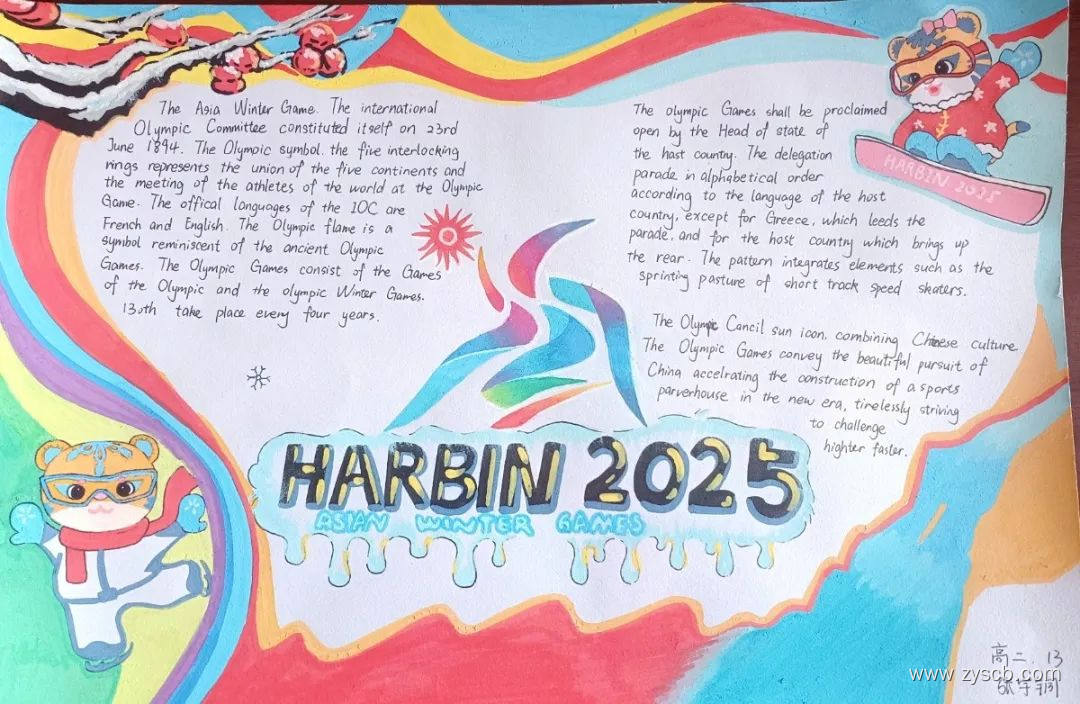 The Asia Winter Game. The international
Olympic Committee constituted itself on 23rd
June 1894. The Olympic symbol. the five interlocking
rings represents the union of the five continents and
the meeting of the athletes of the world at the Olympic
Game. The offical languages of the IOC are
French and English. The Olympic flame is a
symbol reminiscent of the ancient Olympic
Games. The Olympic Games consist of the Games
of the Olympic and the olympic Winter Games.
take place every four years.
The olympic Games shall be proclaimed
open by the Head of state of
the hast country. The delegation
parade in alphabetical order
according to the language of the host
country, except for Greece, which leeds the
parade, and for the host country which brings up
the rear. The pattern integrates elements such as the
sprinting pasture of short track speed skaters.
HARBIN 2025
The Olympic Cancil sun icon, combining Chinese culture
The Olympic Games convey the beautiful pursuit of
China accelrating the construction of a sports
parverhouse in the new era, tirelessly striving
to challenge
highter faster.
HARBIN 2025
ASIAN WINTER GAMES
高二.13
www.zyscb.com